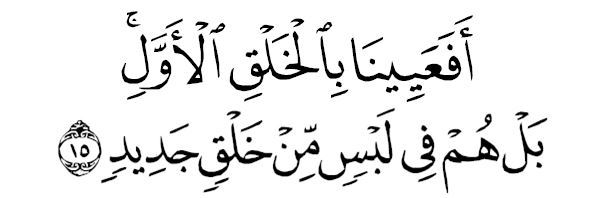 أَفَعَيِينَا بِٱلْخَلْقِ ٱلْأَوَّلِ ۚ
بَلْ هُمْ فِي لَبْسٍ مِّنْ خَلْقٍ جَدِيدٍ ١٥